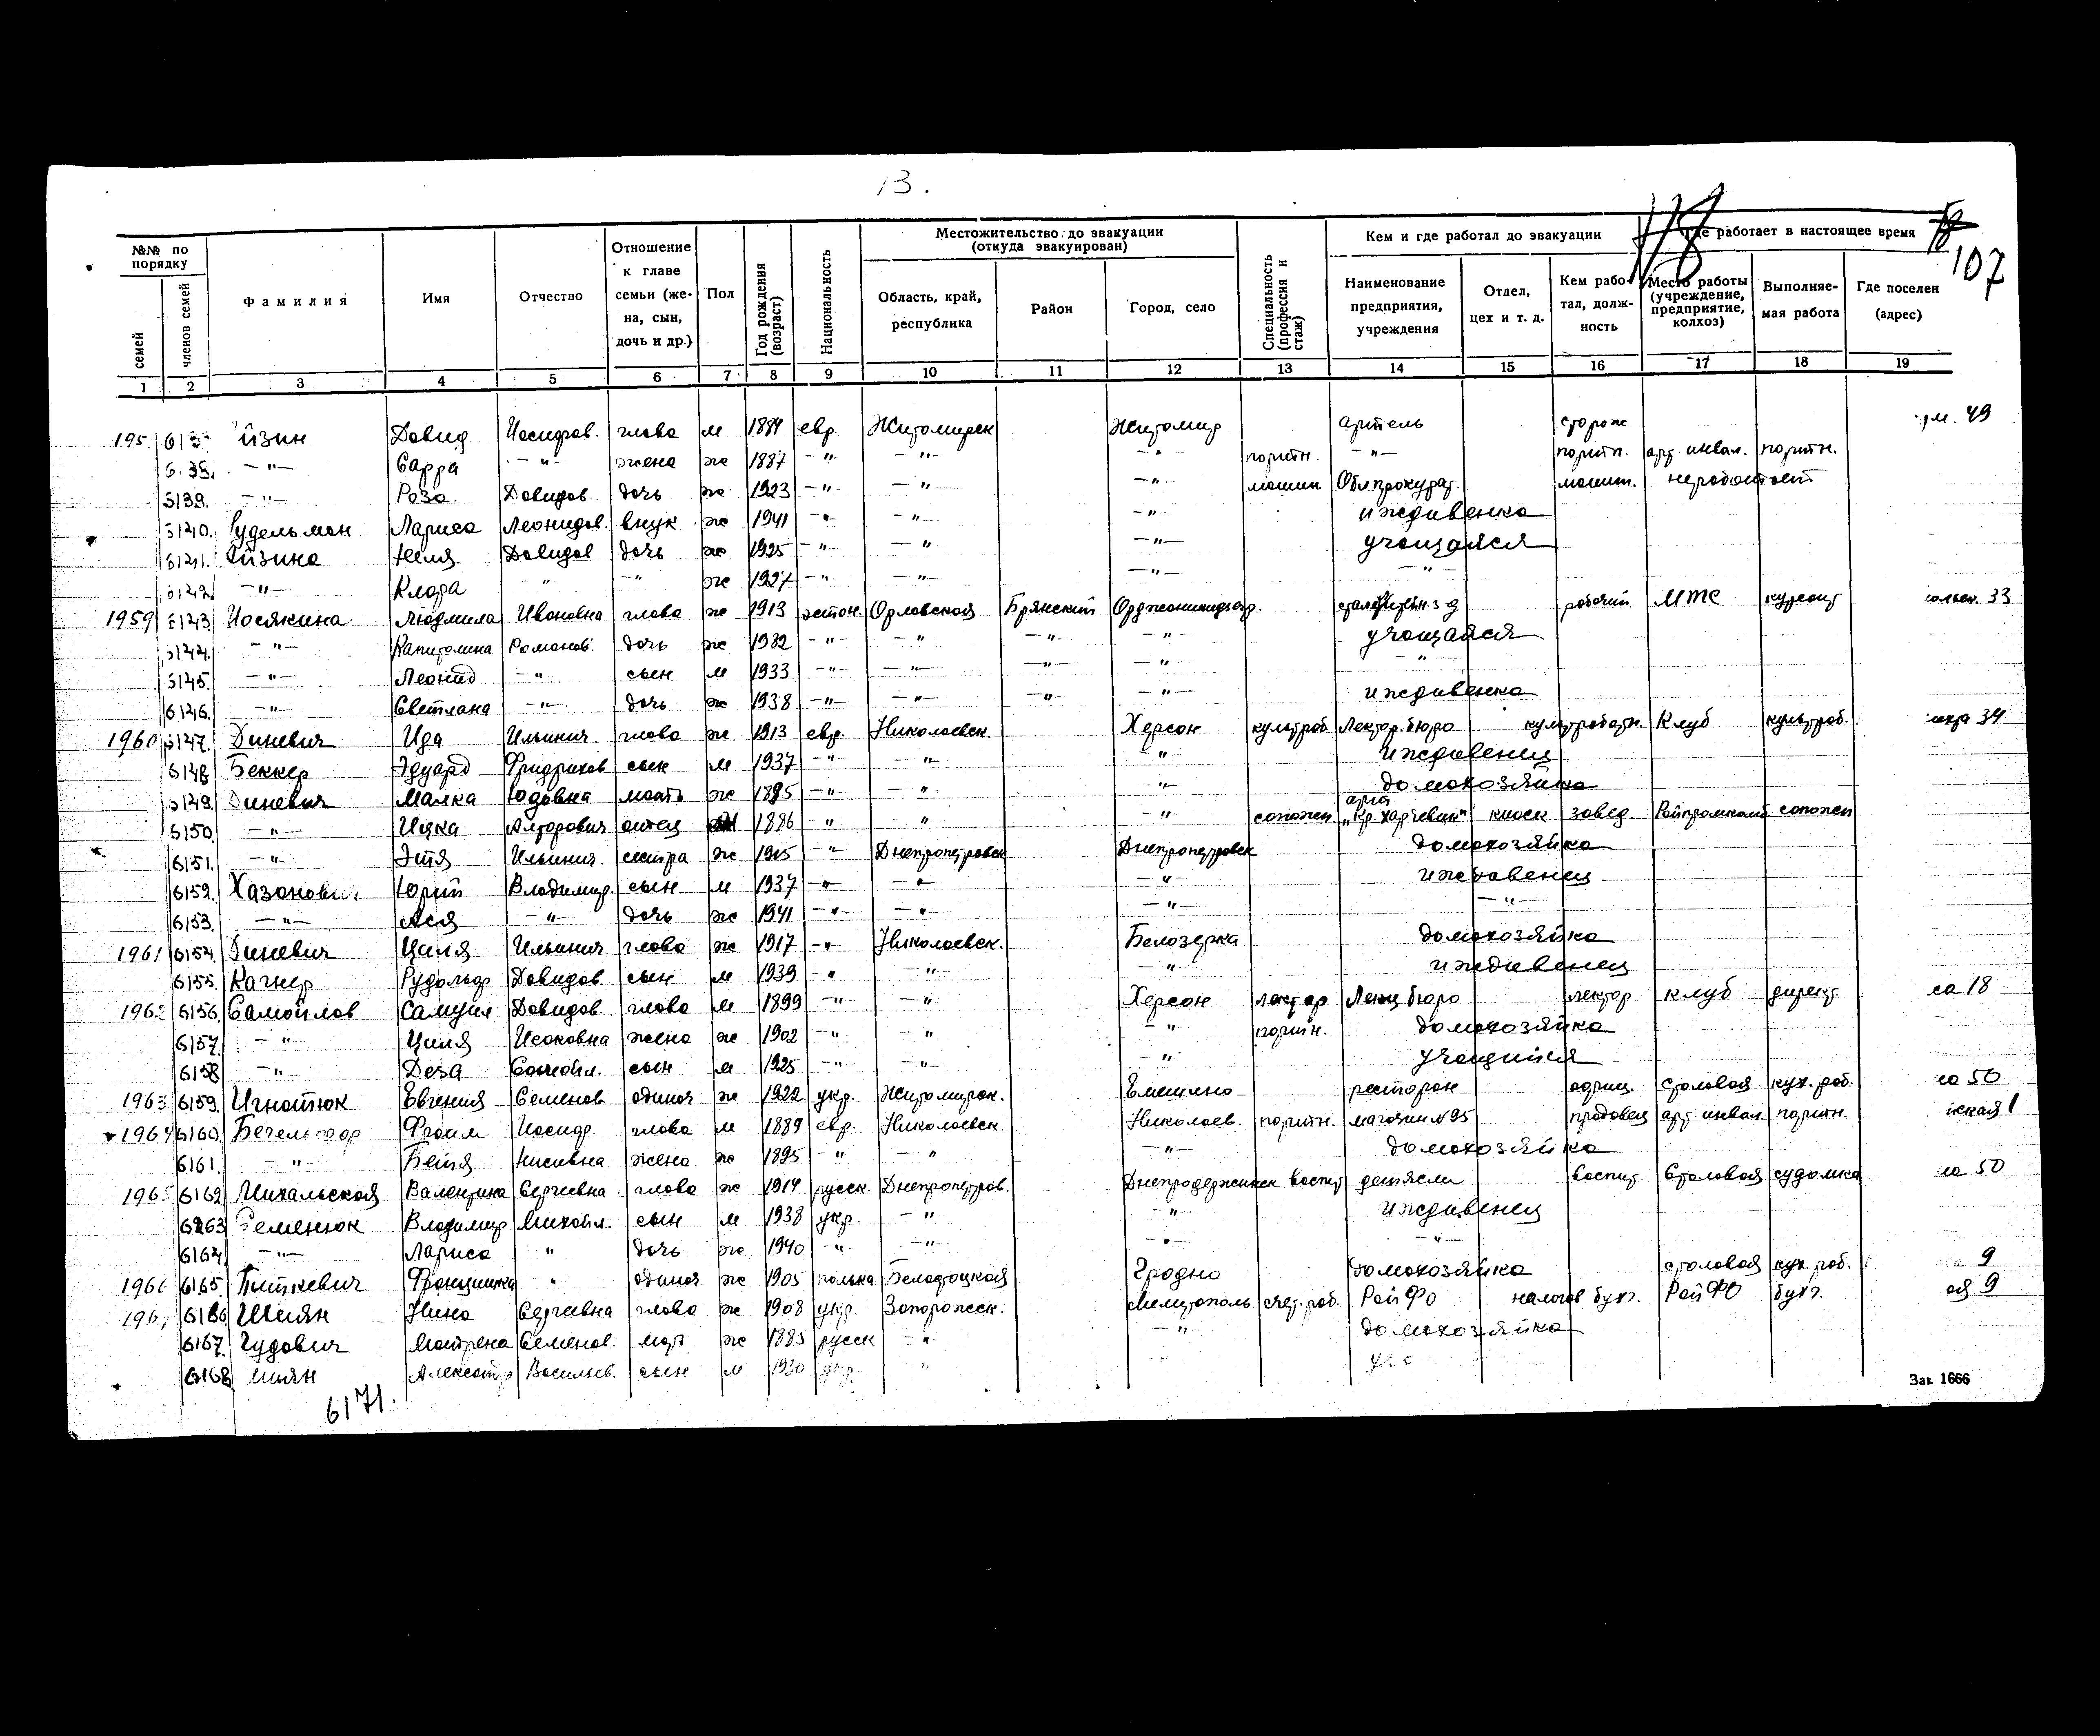 13.
107
№№ по порядку
семей
членов семей
Фамилия
Имя
Отчество
Отношение к главе семьи (жена, сын, дочь и др.)
Пол
Год рождения (возраст)
Национальность
Местожительство до эвакуации (откуда эвакуирован)
Область, край, республика
Район
Город, село
Специальность (профессия и стаж)
Кем и где работал до эвакуации
Наименование предприятия, учреждения
Отдел, цех и т. д.
Кем работал, должность
Где работает в настоящее время
Место работы (учреждение, предприятие, колхоз)
Выполняемая работа
Где поселен (адрес)
1 2 3 4 5 6 7 8 9 10 11 12 13 14 15 16 17 18 19
Давид глава м евр. Житомирск Житомир артель сторож 49
6138. —"— Сарра —"— жена ж 1887 —"— —"— —"— портн. —"— портн. арт. инвал. портн.
6139. —"— Роза Давидов. дочь ж 1923 —"— —"— —"— машин. Облпрокурат. машин. неработает
6140. Гудельман Лариса Леонидов. внук ж 1941 —"— —"— —"— иждивенка
6141. Айзина Давидов дочь ж 1925 —"— —"— —"— учащаяся
6142. —"— Клара " —"— ж 1927 —"— —"— —"— —"—
1959 6143. Носякина Людмила Ивановна глава ж 1913 эстон. Орловская Брянский Орджоникидзегр. рабочий МТС курсант 33
6144. —"— Капитолина Романов. дочь ж 1932 —"— —"— —"— —"— учащаяся
6145. —"— Леонид —"— сын м 1933 —"— —"— —"— —"— "
6146. —"— Светлана —"— дочь ж 1938 —"— —"— —"— —"— иждивенка
1960 6147. Диневич Ида Ильинич глава ж 1913 евр. Николаевск. Херсон культраб Лектор. бюро культработн. Клуб культраб. 34
6148. Беккер Эдуард Фридрихов сын м 1937 —"— —"— " иждивенец
6149. Диневич Малка Юдовна мать ж 1895 —"— " —"— домохозяйка
6150. —"— Ицка Алторович отец 1886 " " —"— сапожн. арт. „Кр. Харчевик" киоск завед. Райпромкомб сапожн
6151. —"— Этя Ильинич сестра ж 1915 —"— Днепропетровск Днепропетровск домохозяйка
6152. Юрий Владимир. сын м 1937 —"— —"— —"— иждивенец
6153. —"— Ася —"— дочь ж 1941 —"— —"— —"— —"—
1961 6154. Диневич Циля Ильинич глава ж 1917 —"— Николаевск. Белозерка домохозяйка
6155. Рудольф Давидов. сын м 1939 —"— —"— —"— иждивенец
6156. Самойлов Самуил Давидов. глава м 1899 —"— —"— Херсон лектор Лекц бюро лектор клуб директ. 18
6157. —"— Циля Исаковна жена ж 1902 —"— " —"— портн. домохозяйка
6158 —"— Самойл. сын м 1925 —"— —"— —"— учащийся
1963 6159. Игнатюк Евгения Семенов. одиноч ж 1922 укр. Житомирск. Емильчино ресторан офиц. столовая кух. раб. 50
1964 6160. Фроим Иосиф. глава м 1889 евр. Николаевск. Николаев. портн. магазин №95 продавец арт. инвал. портн. 1
6161. —"— Бейля жена ж 1895 —"— " —"— домохозяйка
6162 Михальская Валентина Сергеевна глава ж 1914 русск. Днепропетров. Днепродержинск воспит детясли воспит. Столовая судомойка 50
6263 Семенюк Владимир Михайл. сын м 1938 укр. —"— —"— иждивенец
6164 —"— Лариса " дочь ж 1940 —"— —"— —"— "
6165. Питкевич " одиноч. ж 1905 полька Белостоцкая Гродно домохозяйка столовая кух. раб. 9
6166 Шиян Нина Сергеевна глава ж 1908 укр. Запорожск. Мелитополь счет. раб. Рай ФО налогов бухг. Рай ФО бухг. 9
6167. Чудович Матрена Семенов. мать ж 1883 русск —"— —"— домохозяйка
6168 Шиян Александр Васильев. сын м 1930 укр. " "
6171.
Зак. 1666